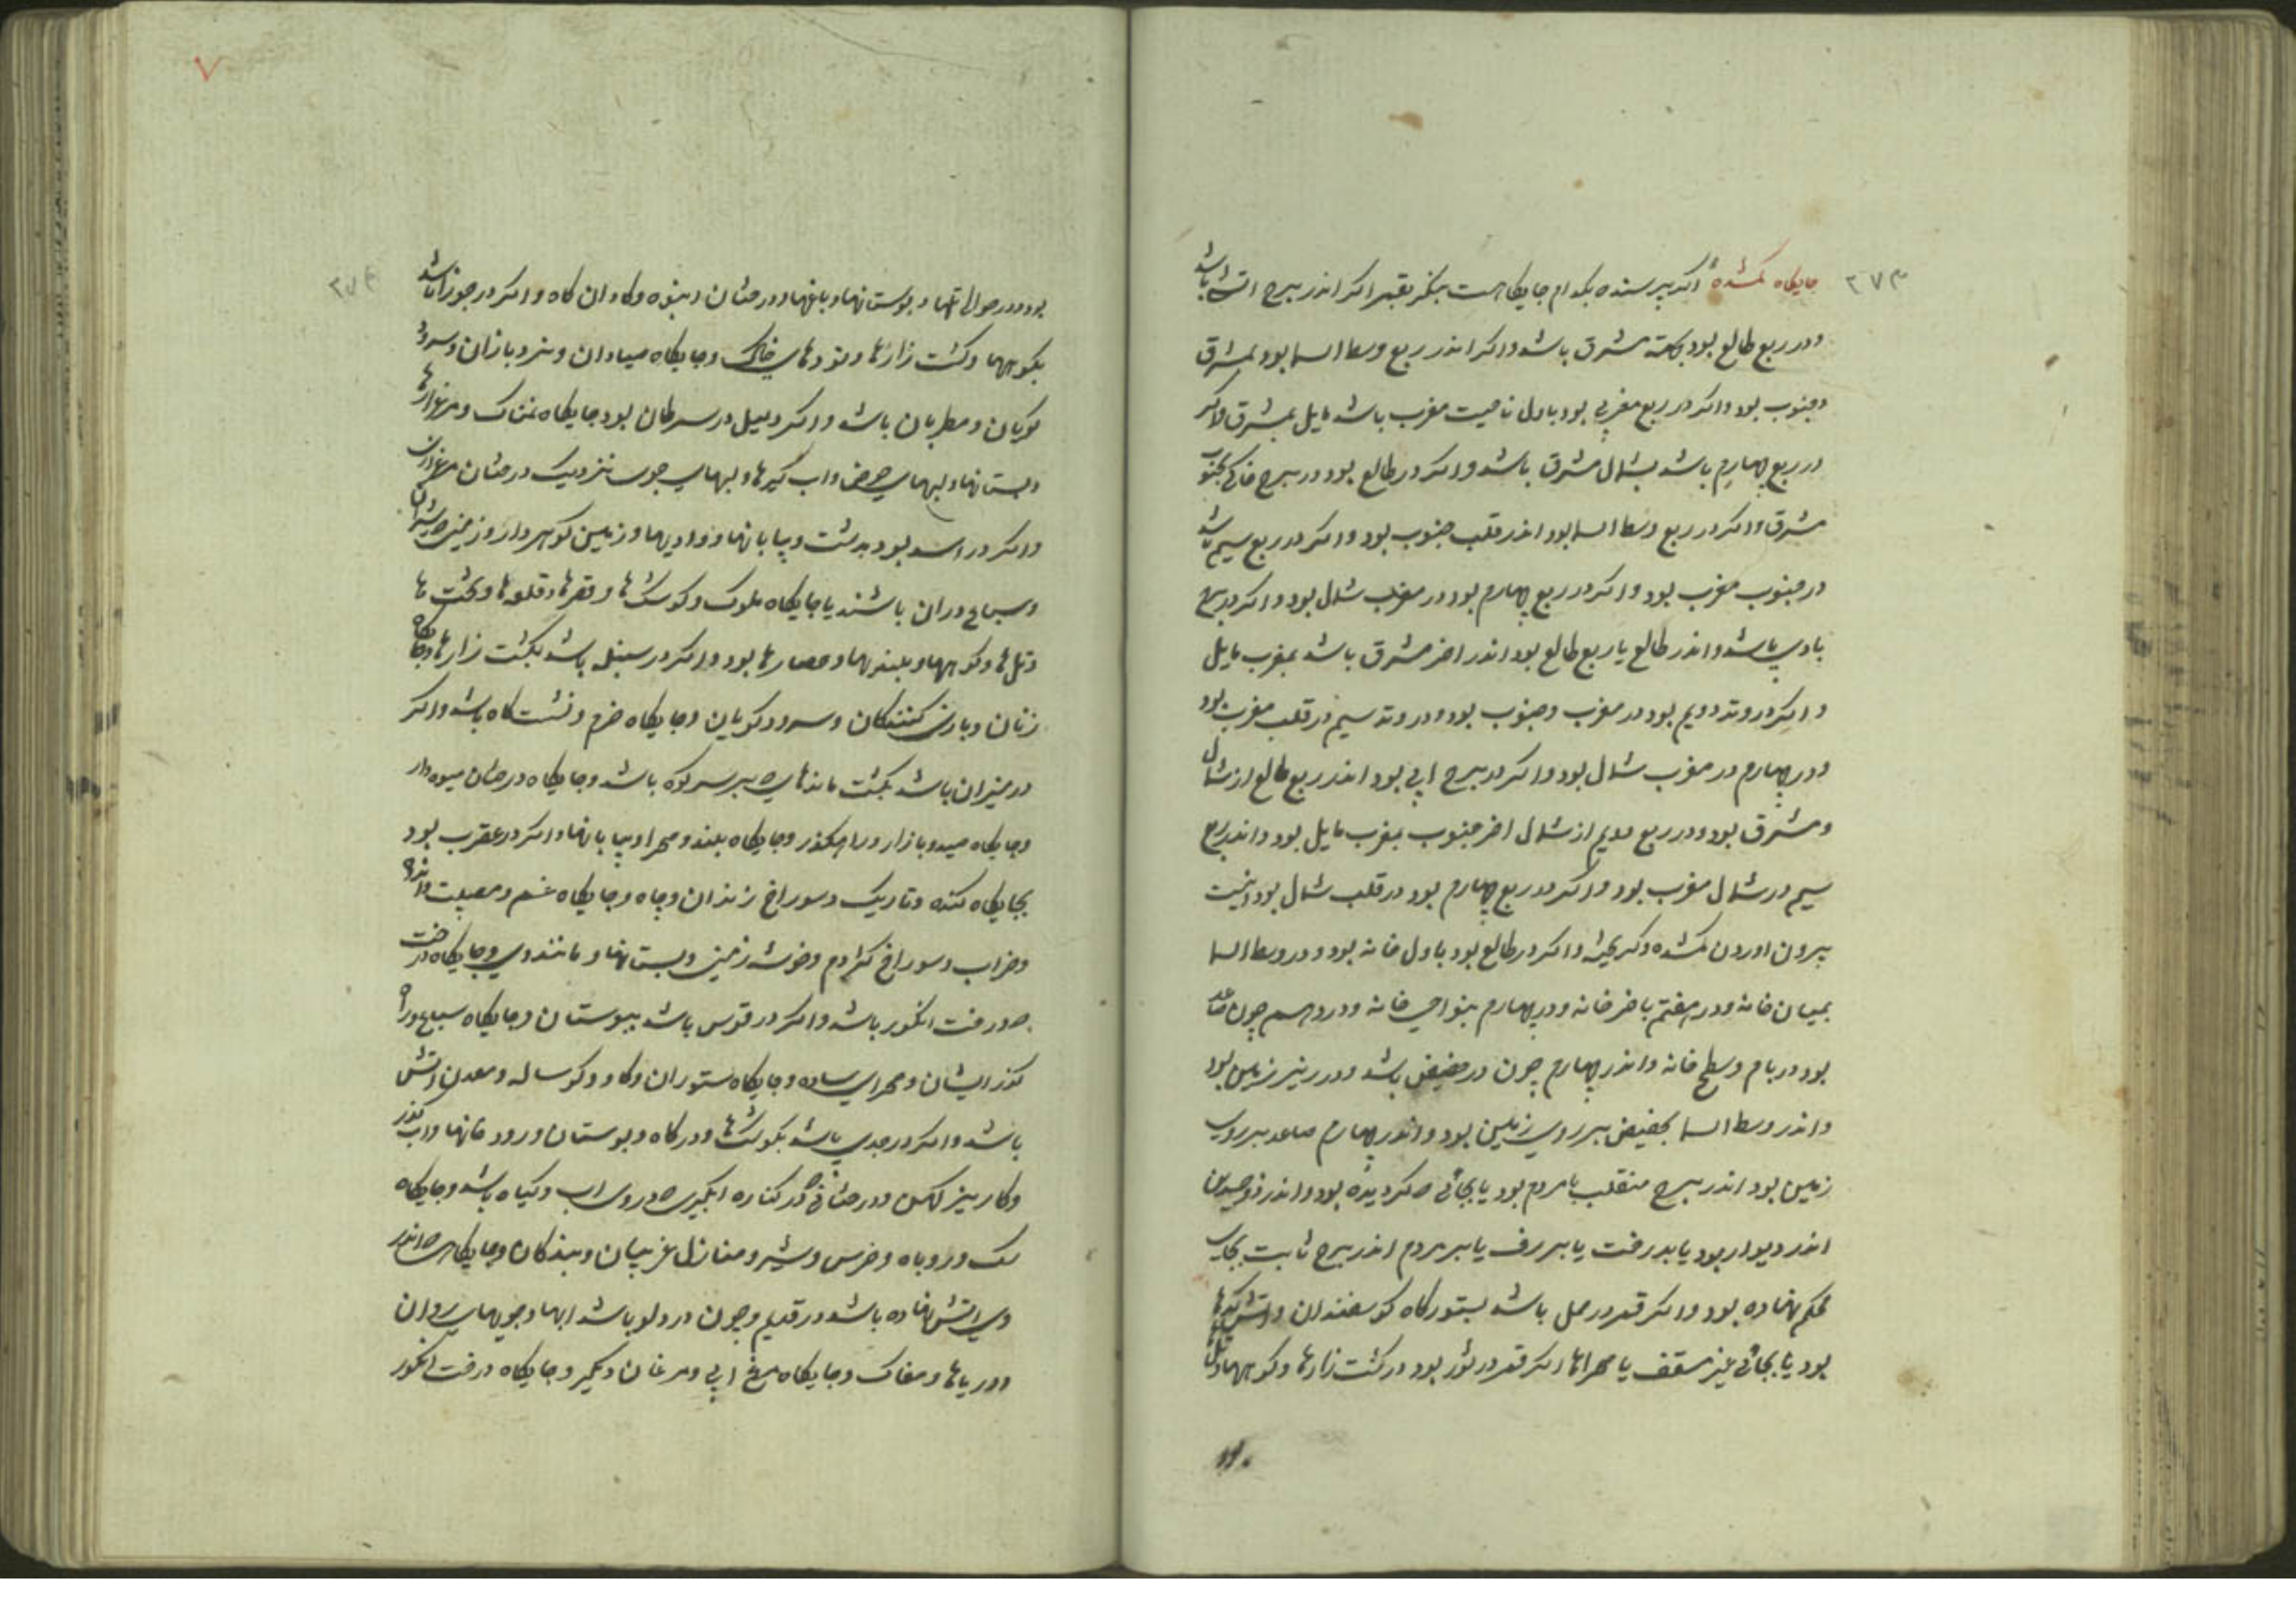 ۲۷۳
جایگاه کمشده اکر پرسنده بکدام جایگاهست بنکر بقمر اکر اندر برج اتشی باشد
ودر ربع طالع بود بجهة مشرق باشد واکر اندر ربع وسط السما بود بمشرق
وجنوب بود واکر در ربع مغربی بود باول ناحیت مغرب باشد مایل بمشرق واکر
در ربع چهارم باشد بشمال مشرق باشد واکر در طالع بود ودر برج خاکی بجنوب
مشرق واکر در ربع وسط السما بود اندر قلب جنوب بود واکر در ربع سیم باشد
در جنوب مغرب بود واکر در ربع چهارم بود در مغرب شمال بود واکر در برج
بادی باشد واندر طالع یا ربع طالع بود اندر اخر مشرق باشد بمغرب مایل
واکر در وتد دویم بود در مغرب وجنوب بود ودر وتد سیم در قلب مغرب بود
ودر چهارم در مغرب شمال بود واکر در برج ابی بود اندر ربع طالع از شمال
ومشرق بود ودر ربع دویم از شمال اخر جنوب بمغرب مایل بود واندر ربع
سیم در شمال مغرب بود واکر در ربع چهارم بود در قلب شمال بود اینست
بیرون اوردن کمشده وکریخته واکر در طالع بود باول خانه بود ودر وسط السما
بمیان خانه ودر هفتم باخر خانه ودر چهارم بنواحی خانه ودر دهم چون صاعد
بود در بام وسطح خانه واندر چهارم چون در حضیض باشد ودر زیر زمین بود
واندر وسط السما بحضیض بر روی زمین بود واندر چهارم صاعد بر روی
زمین بود اندر برج منقلب بامردم بود یا بجائی که کردیده بود واندر ذوجسدین
اندر دیوار بود یا بدرخت یا برف یا بر مردم اندر برج ثابت بجای
محکم نهاده بود واکر قمر در حمل باشد بستورکاه کوسفندان واتشکدها
بود یا بجائی غیر مسقف یا صحراها اکر قمر در ثور بود در کشت زارها وکوهها وتل
بود
۲۷۴
بود ودر حوالی تلها وبوستانها وباغها ودرختان انبوه وکاوان کاه واکر در جوزا باشد
بکوهها وکشت زارها وتودهای خاک وجایگاه صیادان ونرد بازان وسرود
کویان ومطربان باشد واکر دلیل در سرطان بود جایگاه نمناک ومرغزارها
وبستانها ولبهای حوض واب کیرها ولبهای جوی نزدیک درختان مرغزاران
واکر در اسد بود بدشت وبیابانها ووادیها وزمین کوهردار وزمینی که شیران
وسباع دران باشند یا جایگاه ملوک وکوشکها وقصرها وقلعها وتخت ها
وتل ها وکوهها وبلندیها وحصارها بود واکر در سنبله باشد بکشت زارها وجایگاه
زنان وبازی کنندکان وسرود کویان وجایگاه خرم ونشستکاه باشد واکر
در میزان باشد بکشت ماندهای که بر سر کوه باشد وجایگاه درختان میوه دار
وجایگاه صید وبازار وراهکذر وجایگاه بلند وصحرا وبیابانها واکر در عقرب بود
بجایگاه کنده وتاریک وسوراخ زندان وچاه وجایگاه غم ومصیبت واندوه
وخراب وسوراخ کژدم وخوشه زمین وبستانها ومانند وی وجایگاه درخت
که درخت انکور باشد واکر در قوس باشد ببوستان وجایگاه سباع ورا
کذر ایشان وصحرای ساده وجایگاه ستوران وکاو وکوساله ومعدن واتش
باشد واکر در جدی باشد بکوشکها ودرکاه وبوستان ورود خانها واب کذر
وکاریز کهن ودرختانی که در کناره ابکیری که در وی اب وکیاه باشد وجایگاه
سک وروباه وخرس وشیر ومنازل غریبان وبندکان وجایگاهی که اندر
وی اتش نهاده باشد در قدیم وچون در دلو باشد ابها وجویهای روان
ودریاها ومغاک وجایگاه مرغ ابی ومرغان دیکر وجایگاه درخت انکور